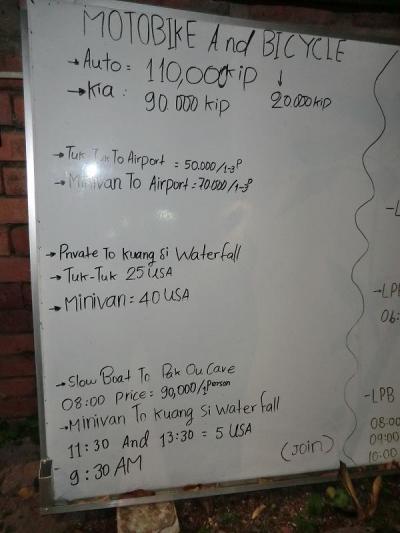 MOTOBIKE And BICYCLE
→Auto = 110,000kip ↓
→kia : 90 000 kip 20.000 kip
→Tuk-Tuk To Airport = 50.000/1-3P
→Minivan To Airport = 70000/1-3P
→Private To Kuang Si Waterfall
→Tuk-Tuk 25 USA
→Minivan = 40 USA
→Slow Boat To Pak Ou Cave
08:00 Price = 90,000/1Person
→Minivan To Kuang Si Waterfall
11:30 And 13:30 = 5 USA
9:30 AM
(Join)
-LPB
08:00
09:00
10:00